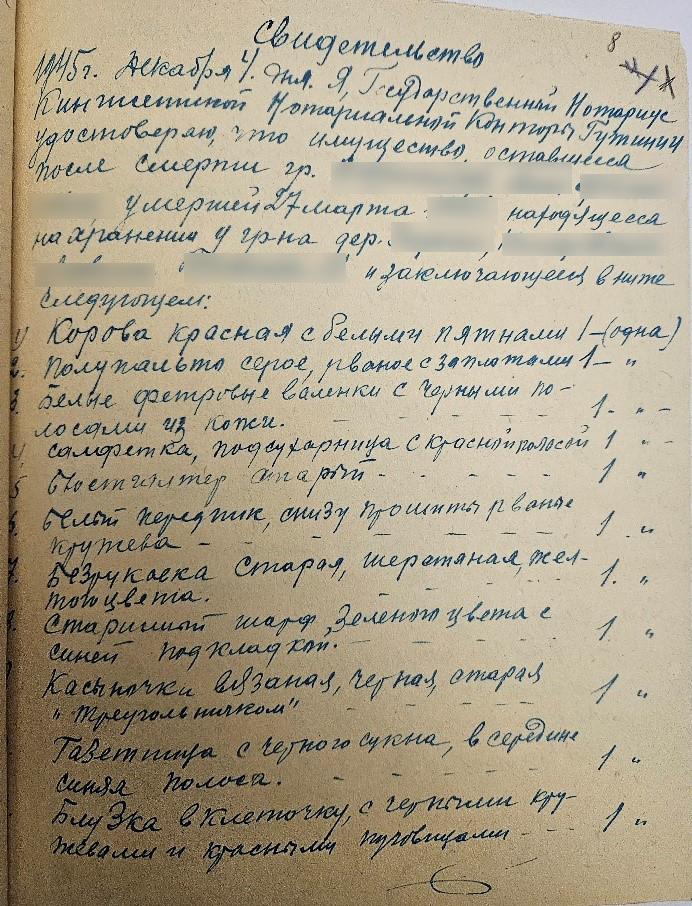 8
Свидетельство
1945г. Декабря 4. дня. Я, Государственный Нотариус
Кингисеппской Нотариальной Конторы Гутинин
удостоверяю, что имущество, оставшееся
после смерти гр.
умершей 27 марта находящееся
на хранении у гр-на дер.
и заключающееся в ниже
следующем:
1) Корова красная с белыми пятнами 1-(одна)
2. Полупальто серое, рваное с заплатами 1- "
3. Белые фетровые валенки с черными по-
лосами из кожи. 1. " -
4) Салфетка, подсухарница с красной полосой 1 " -
5 Бюстгалтер старый 1 "
6. Белый передник, снизу прошиты рваные
кружева - 1. "
7. Безрукавка старая, шерстяная, жел-
того цвета. 1. "
8. Старинный шарф зеленого цвета с
синей подкладкой. 1. "
Касыночки вязаная, черная, старая
"треугольничком" 1 "
Газетница с черного сукна, в середине
синяя полоса. 1 "
Блузка в клеточку, с черными кру-
жевами и красными пуговицами 1 "